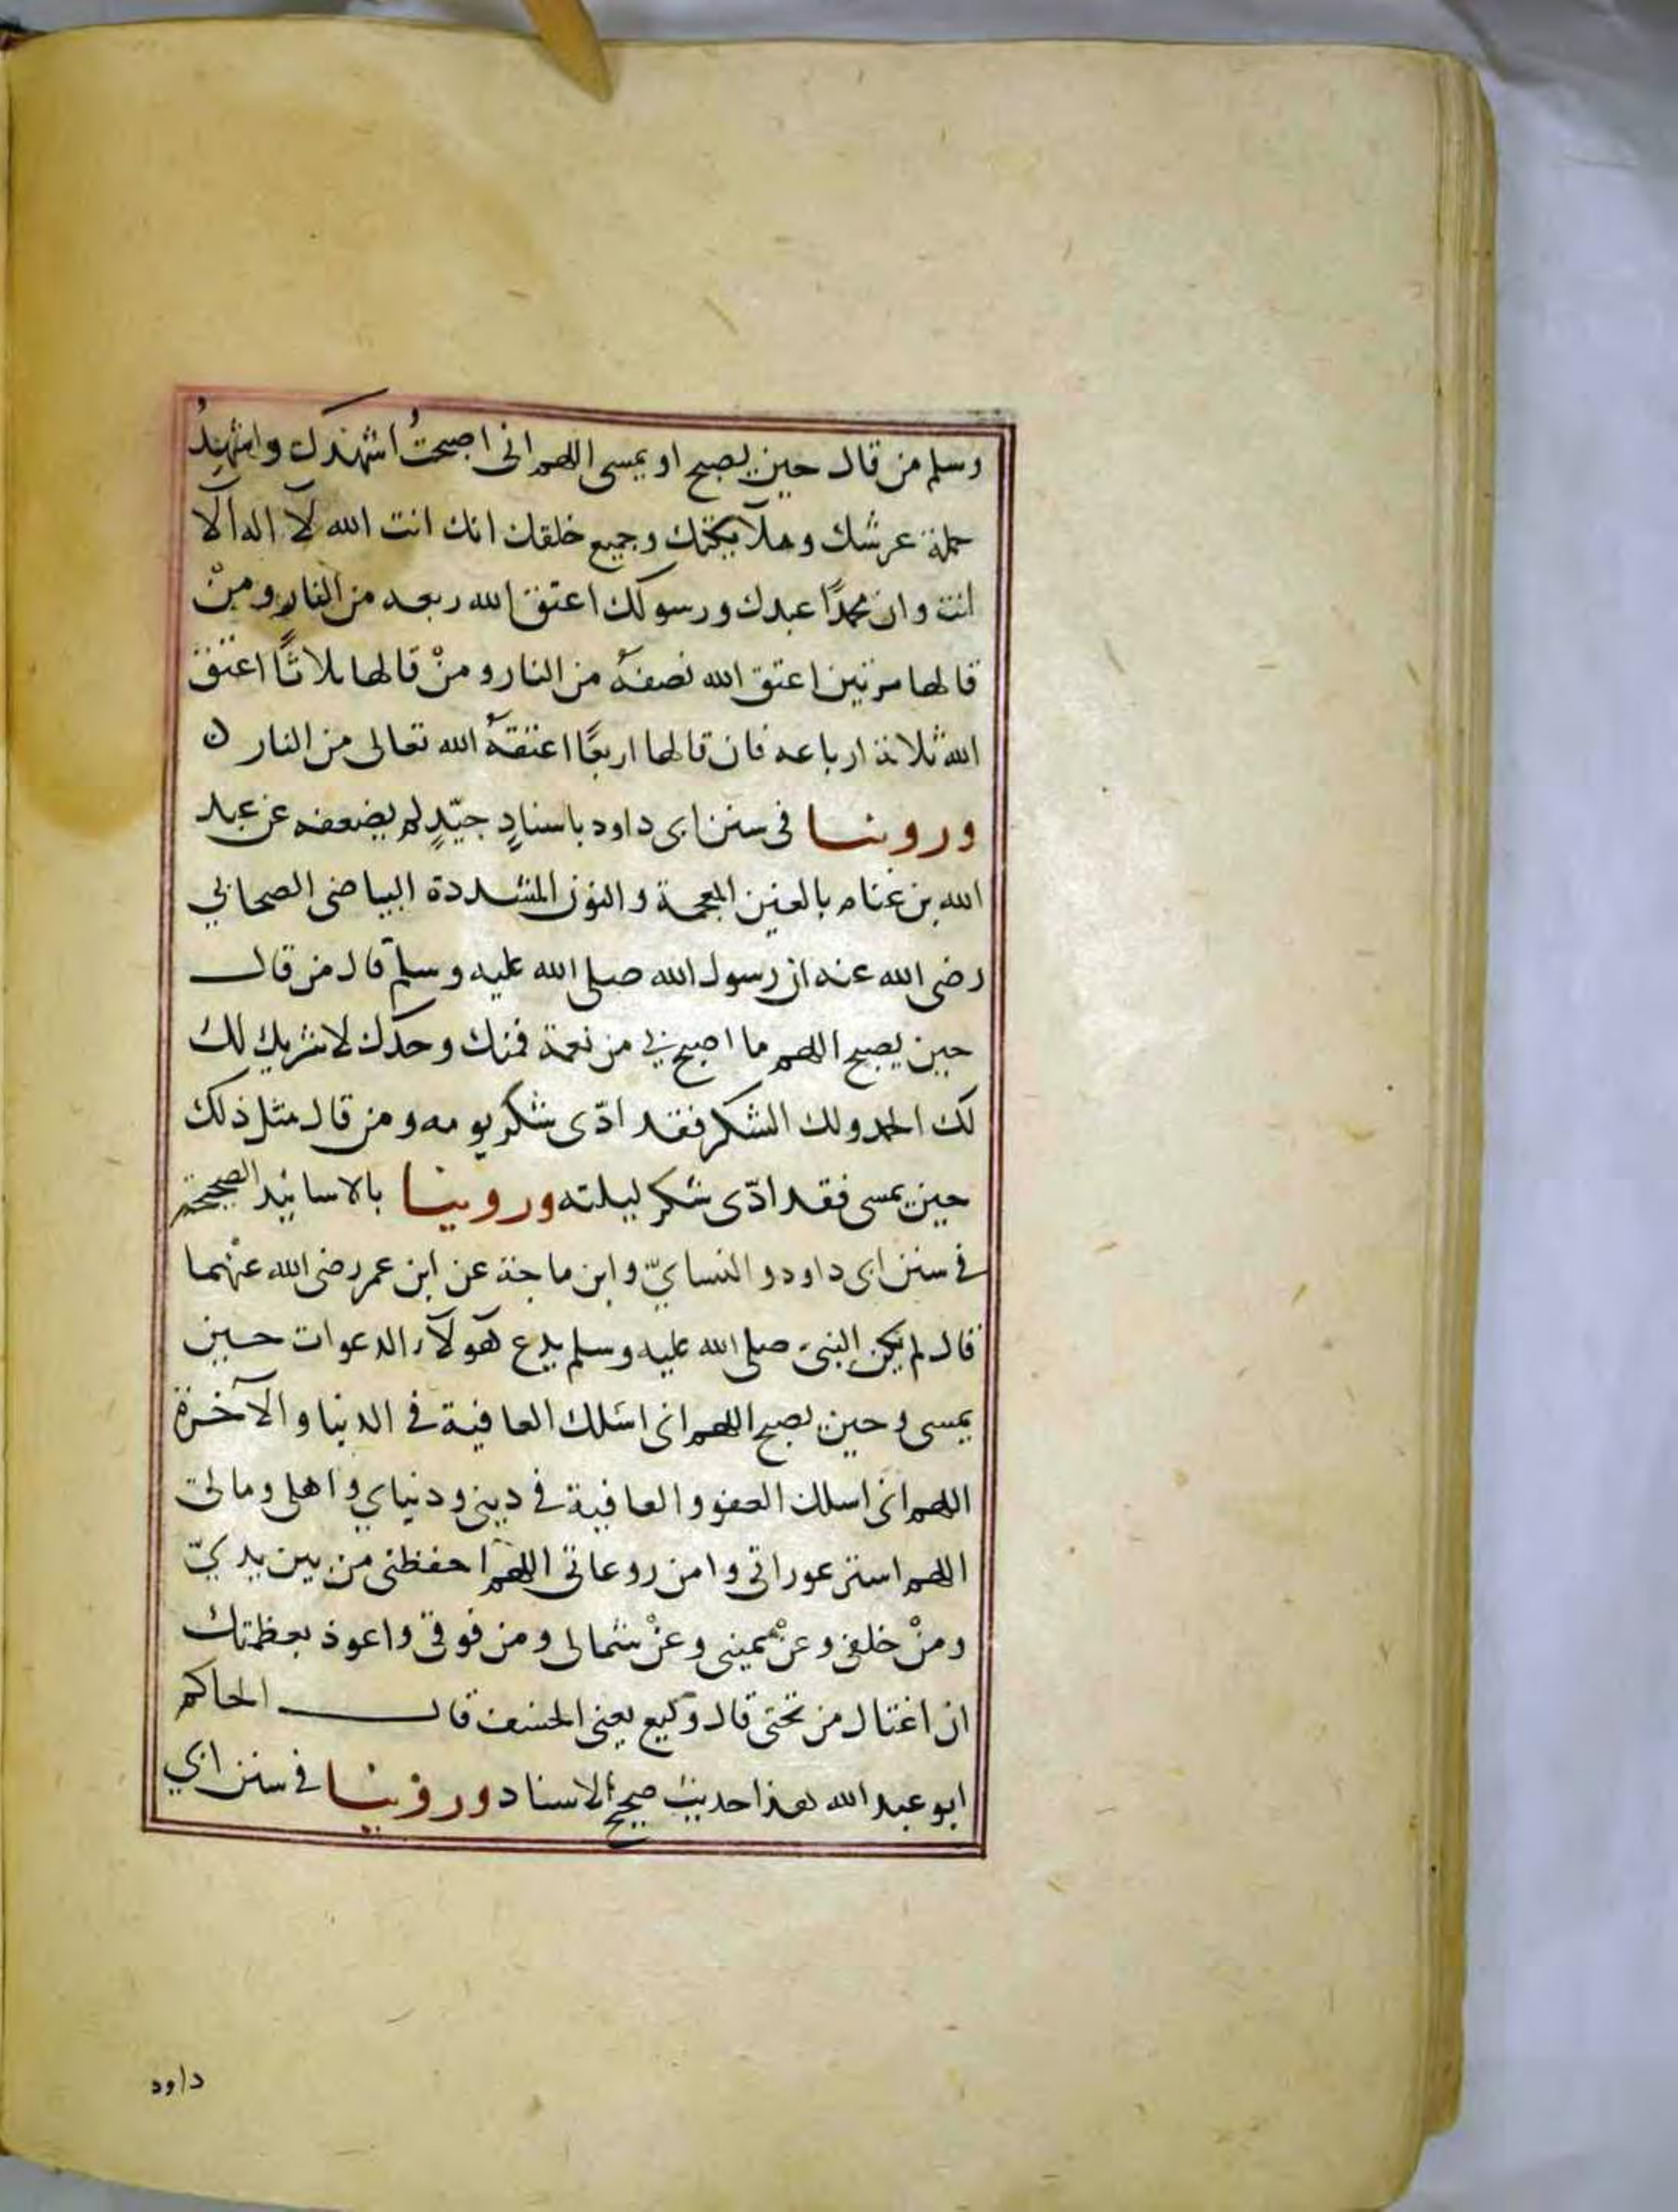 وسلم من قال حين يصبح او يمسى اللهم انى اصبحتُ اشهدك واشهدُ
حملة عرشك وملآئكتك وجميع خلقك انك انت الله لآ اله الّا
انت وان محمدًا عبدك ورسولك اعتق الله ربعه من النار ومنْ
قالها مرتين اعتق الله نصفهُ من النار ومنْ قالها ثلاثًا اعتق
الله ثلاثة ارباعه فان قالها اربعًا اعتقهُ الله تعالى من النار ن
وروينا فى سنن ابى داود باسنادٍ جيّدٍ لم يضعفه عن عبد
الله بن غنام بالغين المعجمة والنون المشددة البياضى الصحابي
رضى الله عنه ان رسول الله صلى الله عليه وسلم قال من قال
حين يصبح اللهم ما اصبح بي من نعمة فمنك وحدك لا شريك لك
لك الحمد ولك الشكر فقد ادّى شكر يومه ومن قال مثل ذلك
حين يمسى فقد ادّى شكر ليلته وروينا بالاسانيد الصحيحة
فى سنن ابى داود والنسايّ وابن ماجة عن ابن عمر رضى الله عنْهما
قال لم يكن النبى صلى الله عليه وسلم يدع هولآء الدعوات حين
يمسى وحين يصبح اللهم انى اسئلك العافية فى الدنيا والآخرة
اللهم انى اسلك العفو والعافية فى دينى ودنياي واهلى ومالى
اللهم استر عوراتى وامن روعاتى اللهم احفظنى من بين يديّ
ومنْ خلفى وعنْ يمينى وعنْ شمالى ومن فوقى واعوذ بعظمتك
ان اغتال من تحتى قال وكيع يعنى الخسف قال الحاكم
ابو عبد الله هذا حديث صحيح الاسناد وروينا فى سنن ابي
داود